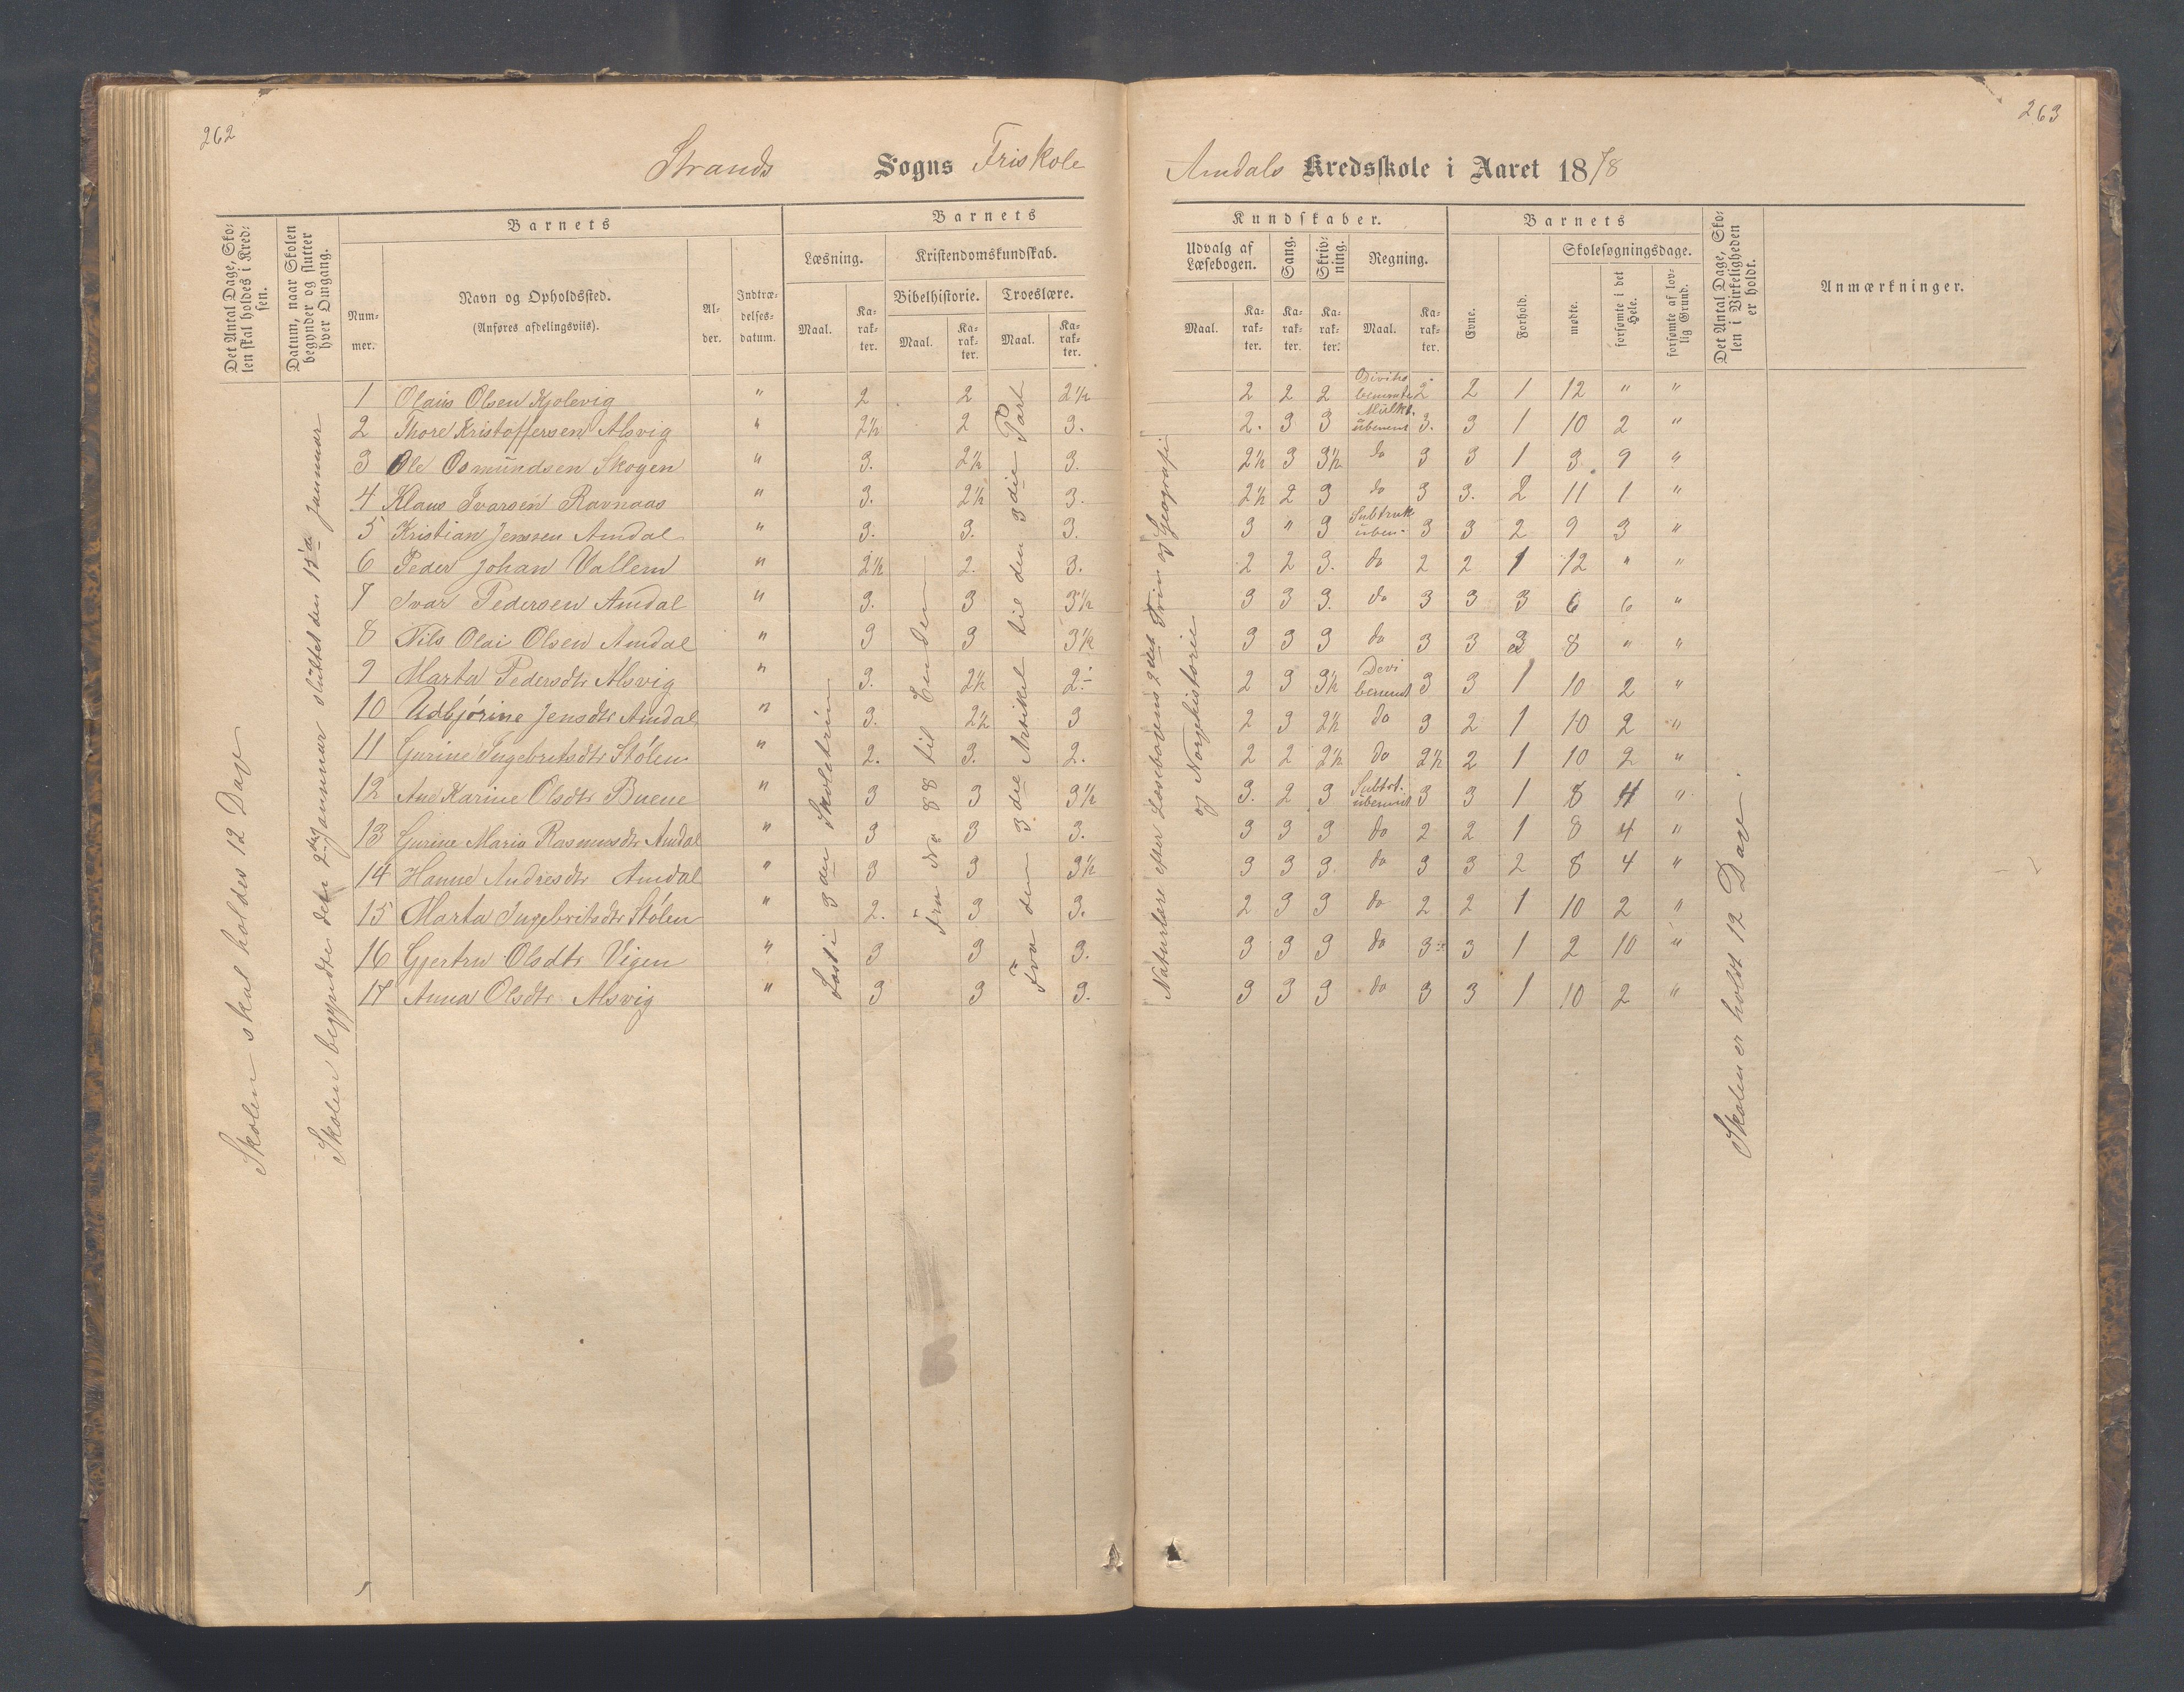 262
Strands Sogns Friskole
Det Antal Dage, Sko-
len skal holdes i Kred-
sen.
Datum, naar Skolen
begynder og slutter
hver Omgang.
Barnets
Num-
mer.
Navn og Opholdssted.
(Anføres afdelingsviis).
Al-
der.
Indtræ-
delses-
datum.
Barnets
Læsning.
Kristendomskundskab.
Maal.
Ka-
rak-
ter.
Bibelhistorie.
Troeslære.
Maal.
Ka-
rak-
ter.
Maal.
Ka-
rak-
ter.
Skolen skal holdes 12 Dage
Skolen begyndte den 2den Januar sluttet den 15da Januuar
Læst i 3den Skoletrin
Fra No 88 til Enden
Fra den 3die Artikel til den 3die Part
1 Olaus Olsen Kjolevig " 2 2 2½
2 Thore Kristoffersen Alsvig " 2½ 2 3.
3 Ole Osmundsen Skogen " 3. 2½ 3.
4 Klaus Ivarsen Ravnaas " 3. 2½ 3.
5 Kristian Jenssen Amdal " 3. 3. 3.
6 Peder Johan Vallem " 2½ 2. 3.
7 Ivar Pedersen Amdal " 3. 3 3½
8 Nils Olai Olsen Amdal " 3 3 3½
9 Marta Pedersdtr Alsvig " 3. 2½ 2.
10 Udbjørine Jensdtr Amdal " 3. 2½ 3
11 Gurine Ingebretsdtr Stølen " 2. 3. 2.
12 Ane Karine Olsdtr Buene " 3 3 3½
13 Gurine Maria Rasmusdtr Amdal " 3 3 3.
14 Hanne Andresdtr Amdal " 3 3 3½
15 Marta Ingebritsdtr Stølen " 2. 3 3.
16 Gjertru Olsdtr Vigen " 3 3 3.
17 Anna Olsdtr Alsvig " 3 3 3.
263
Amdals Kredsskole i Aaret 1878
Kundskaber.
Udvalg af
Læsebogen.
Sang.
Skriv-
ning.
Regning.
Maal.
Ka-
rak-
ter.
Ka-
rak-
ter.
Ka-
rak-
ter.
Maal.
Ka-
rak-
ter.
Barnets
Evne.
Forhold.
Skolesøgningsdage.
mødte.
forsømte i det
Hele.
forsømte af lov-
lig Grund.
Det Antal Dage, Sko-
len i Virkeligheden
er holdt.
Anmærkninger.
Naturlære efter Læsebogens 2det Trin og Geografi
og Norgehistorie
2 2 2 2 2 1 12 " "
2. 3 3 3. 3 1 10 2 "
2½ 3 3½ do 3 3 1 3. 9 "
2½ 2 3 do 3 3. 2 11 1 "
3 " 3 Subtrak 3 3 2 9 3 "
2 2 3. do 2 2 1 12 " "
3 3 3. do 3 3 3 6 6 "
3 3 3 do 3 3 3 8 " "
2 3 3½ 3 3 1 10 2 "
2 3 2½ do 3 2 1 10 2 "
2 2 2½ do 2½ 2 1 10 2 "
3. 2 3 3 3 1 8 4 "
3 3 3 do 2 2 1 8 4 "
3 3 3. do 3 3 2 8 4 "
2 3 3 do 2 2 1 10 2 "
3 3 3 do 3 3 1 2 10 "
3 3 3 do 3 3 1 10 2 "
Skolen er holdt 12 Dage.